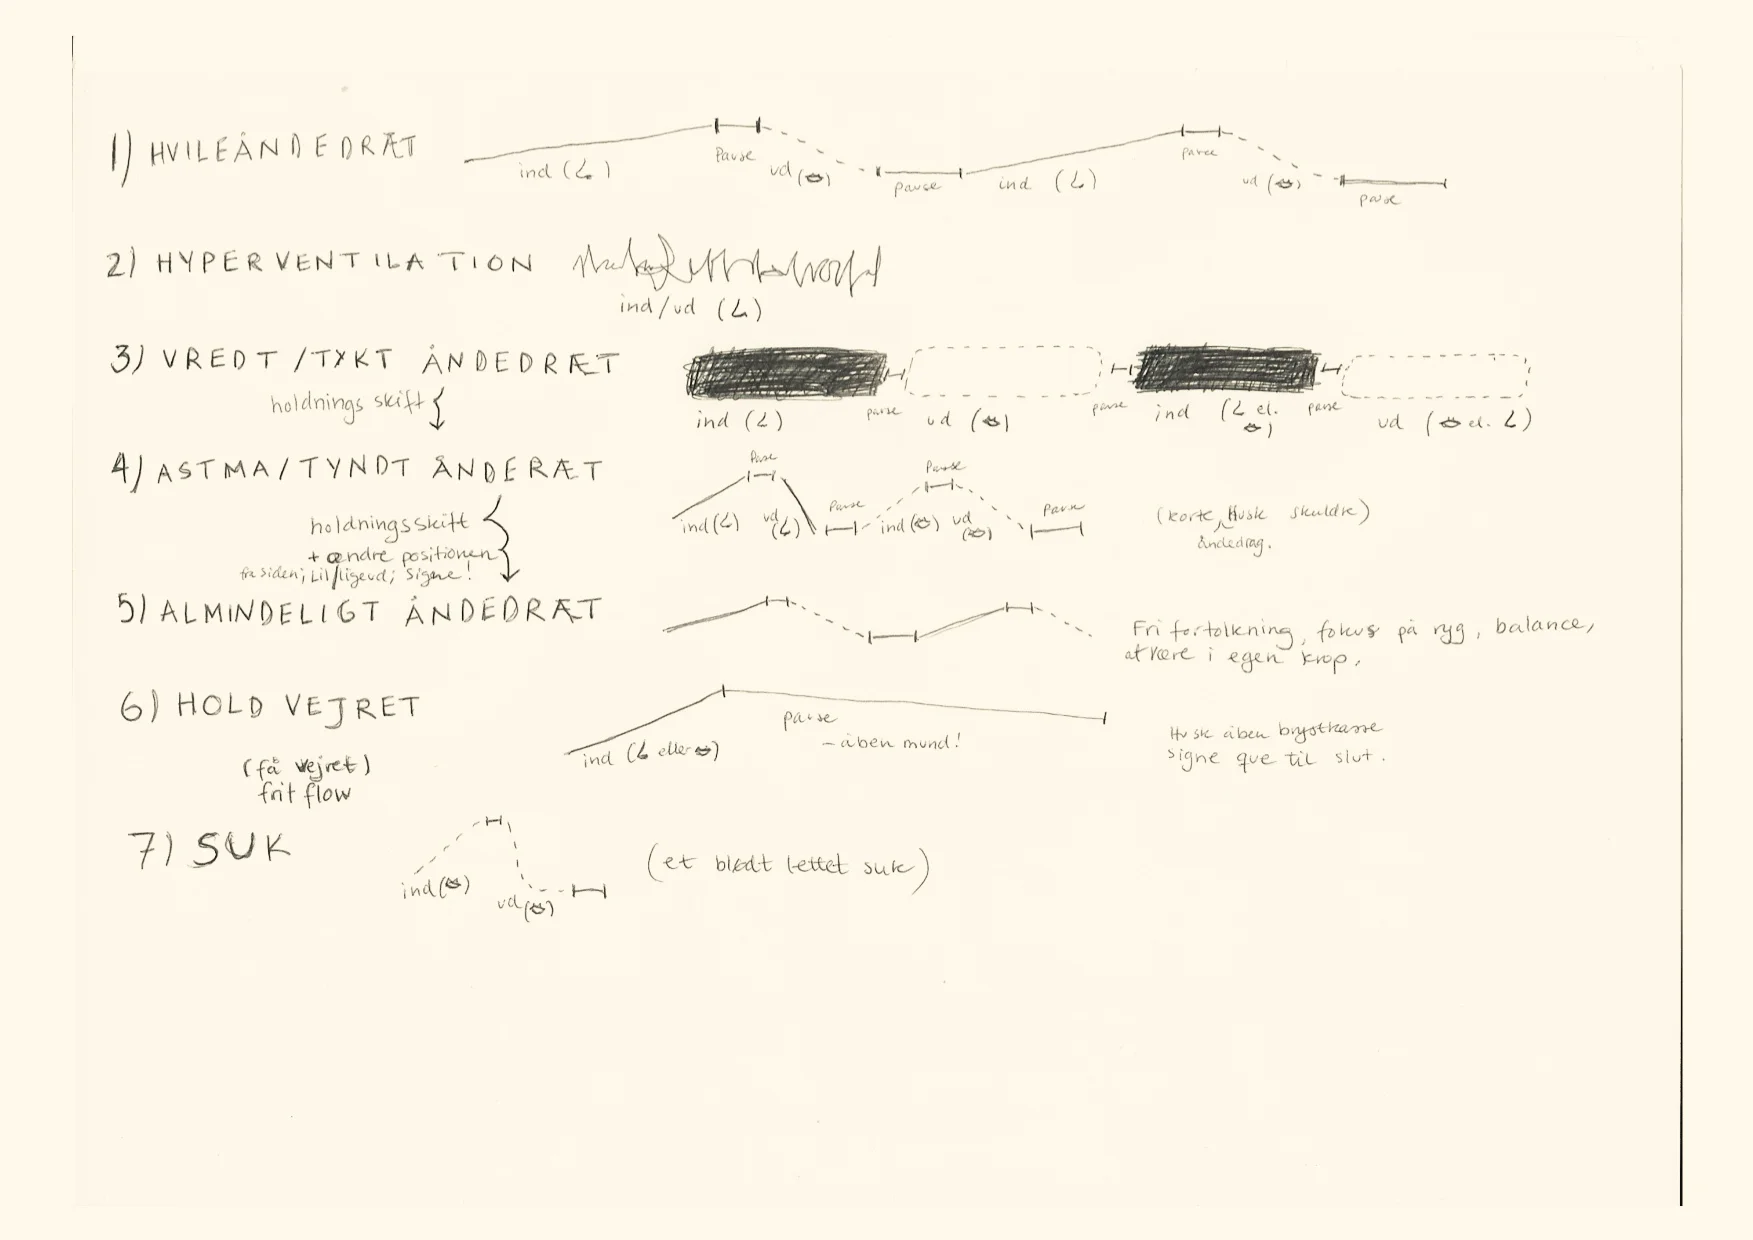 1) HVILEÅNDEDRÆT
ind ( ) Pause ud ( ) pause ind ( ) pause ud ( ) pause
2) HYPERVENTILATION
ind/ud ( )
3) VREDT/TYKT ÅNDEDRÆT
holdnings skift
ind ( ) pause ud ( ) pause ind ( el. ) pause ud ( el. )
4) ASTMA/TYNDT ÅNDERÆT
Pause Pause
ind ( ) ud ( ) Pause ind ( ) ud ( ) Pause
(korte, Husk skuldre)
åndedrag.
holdningsskift
+ ændre positionen
fra siden; Lil/ligeud; Signe!
5) ALMINDELIGT ÅNDEDRÆT
Fri fortolkning, fokus på ryg, balance,
at være i egen krop.
6) HOLD VEJRET
ind ( eller ) pause
- åben mund!
Husk åben brystkasse
Signe que til slut.
(få vejret)
frit flow
7) SUK
ind ( ) ud ( )
(et blødt lettet suk)